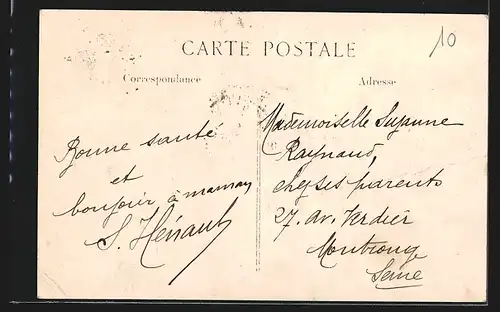 CARTE POSTALE
10
Correspondance
Adresse
Bonne santé
et
bonjour à maman
S. Hénault
Mademoiselle Suzanne
Raynaud,
chez ses parents
27, av. Verdier
Montrouge
Seine